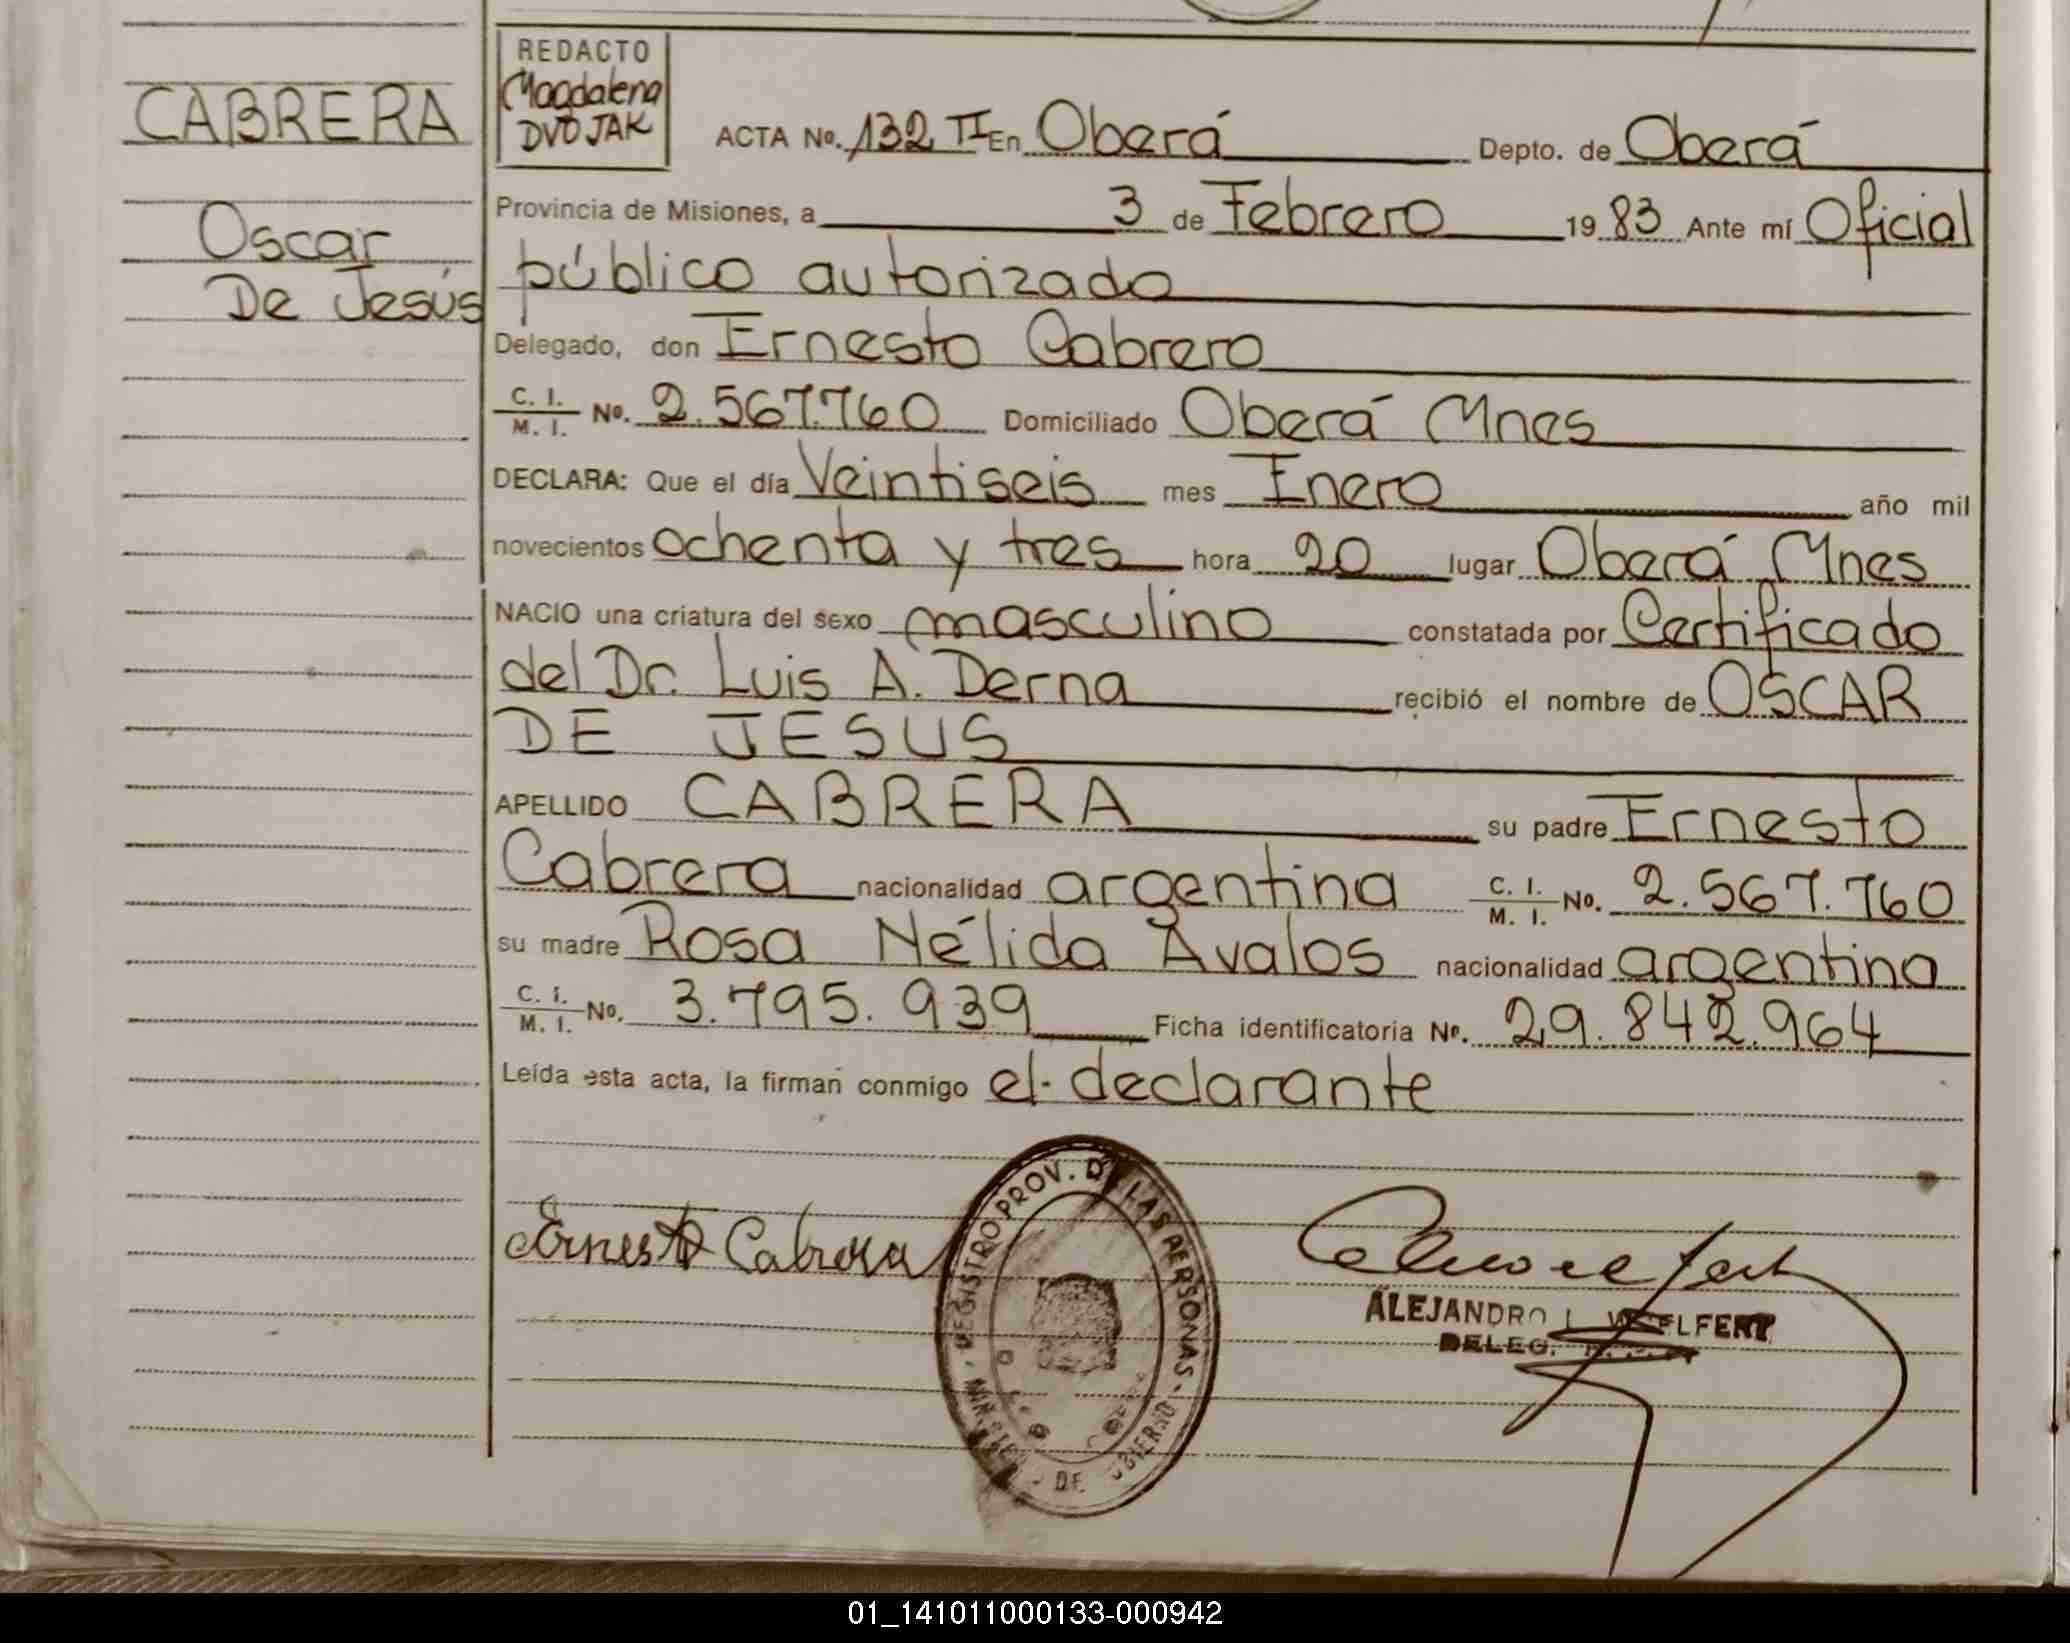 CABRERA
Oscar
De Jesús
REDACTO
Magdalena
DVOJAK
ACTA No. 132 TI En Oberá Depto. de Oberá
Provincia de Misiones, a 3 de Febrero 1983 Ante mí Oficial
público autorizado
Delegado, don Ernesto Cabrero
C. I. / M. I. No. 2.567.760 Domiciliado Oberá Mnes
DECLARA: Que el día Veintiseis mes Enero año mil
novecientos ochenta y tres hora 20 lugar Oberá Mnes
NACIO una criatura del sexo masculino constatada por Certificado
del Dr. Luis A. Derna recibió el nombre de OSCAR
DE JESUS
APELLIDO CABRERA su padre Ernesto
Cabrera nacionalidad argentina C. I. / M. I. No. 2.567.760
su madre Rosa Nélida Avalos nacionalidad argentina
C. I. / M. I. No. 3.795.939 Ficha identificatoria No. 29.842.964
Leída esta acta, la firman conmigo el declarante
Ernesto Cabrera
REGISTRO PROV. DE LAS PERSONAS
DE GOBIERNO
ALEJANDRO L.
DELEG.
01_141011000133-000942